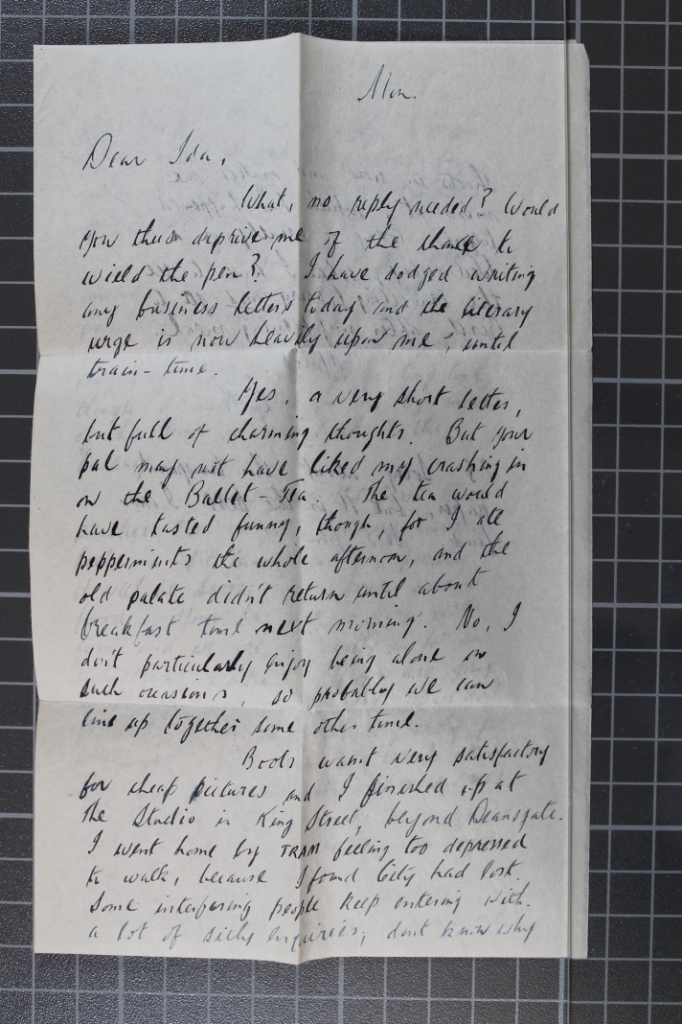 Mon.
Dear Ida,
What, no reply needed? Would
you thus deprive me of the chance to
wield the pen? I have dodged writing
any business letters today and the literary
urge is now heavily upon me, until
train-time.
Yes, a very short letter,
but full of charming thoughts. But your
pal may not have liked my crashing in
on the Ballet-Tea. The tea would
have tasted funny, though, for I ate
peppermints the whole afternoon, and the
old palate didn't return until about
breakfast time next morning. No, I
don't particularly enjoy being alone on
such occasions, so probably we can
line up together some other time.
Boots wasn't very satisfactory
for cheap pictures and I finished up at
the Studio in King Street, beyond Deansgate.
I went home by TRAM feeling too depressed
to walk, because I found City had lost.
Some interfering people keep entering with
a lot of silly enquiries, don't know why